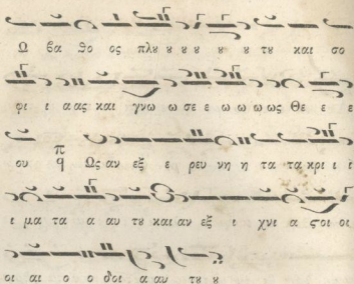 Ω βα θο ος πλȣ ȣ ȣ ȣ ȣ ȣ τȣ και σο
φι ι α ας και γνω ω σε ε ω ω ω ως Θε ε ε
ου π ϥ Ως αν εξ ε ρευ νη η τα τα κρι ι ι
ι μα τα α αυ τȣ και αν εξ ι χνι α ςοι οι
οι αι ο ο δοι α αυ τȣ ȣ